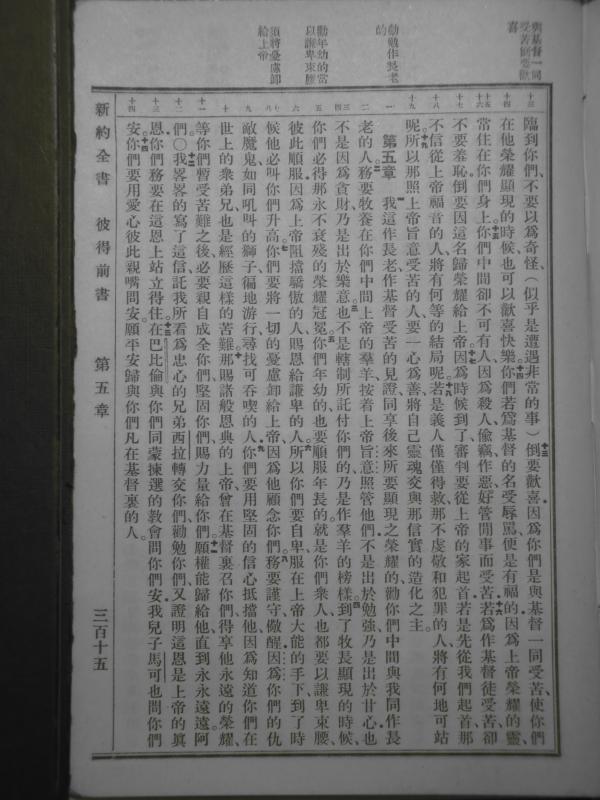 與基督一同
受苦倒要歡
喜
勸勉作長老
的
勸年幼的當
以謙卑束腰
須將憂慮卸
給上帝
臨到你們、不要以爲奇怪、(似乎是遭遇非常的事)倒要歡喜、因爲你們是與基督一同受苦、使你們
在他榮耀顯現的時候、也可以歡喜快樂、你們若爲基督的名受辱罵、便是有福的、因爲上帝榮耀的靈、
常住在你們身上、你們中間卻不可有人、因爲殺人、偷竊、作惡、好管閒事而受苦、若爲作基督徒受苦、卻
不要羞恥、倒要因這名歸榮耀給上帝、因爲時候到了、審判要從上帝的家起首、若是先從我們起首、那
不信從上帝福音的人、將有何等的結局呢、若是義人僅僅得救、那不虔敬和犯罪的人、將有何地可站
呢、所以那照上帝旨意受苦的人、要一心爲善、將自己靈魂交與那信實的造化之主。
第五章　我這作長老、作基督受苦的見證、同享後來所要顯現之榮耀的、勸你們中間與我同作長
老的人、務要牧養在你們中間上帝的羣羊、按着上帝旨意照管他們、不是出於勉強、乃是出於甘心、也
不是因爲貪財、乃是出於樂意、也不是轄制所託付你們的、乃是作羣羊的榜樣、到了牧長顯現的時候、
你們必得那永不衰殘的榮耀冠冕、你們年幼的、也要順服年長的、就是你們衆人、也都要以謙卑束腰、
彼此順服、因爲上帝阻擋驕傲的人、賜恩給謙卑的人、所以你們要自卑、服在上帝大能的手下、到了時
候他必叫你們升高、你們要將一切的憂慮卸給上帝、因爲他顧念你們、務要謹守、儆醒、因爲你們的仇
敵魔鬼、如同吼叫的獅子、徧地游行、尋找可吞喫的人、你們要用堅固的信心抵擋他、因爲知道你們在
世上的衆弟兄、也是經歷這樣的苦難、那賜諸般恩典的上帝、曾在基督裏召你們得享他永遠的榮耀、
等你們暫受苦難之後、必要親自成全你們、堅固你們、賜力量給你們、願權能歸給他、直到永永遠遠、阿
們、○我畧畧的寫了這信、託我所看爲忠心的兄弟西拉轉交你們、勸勉你們、又證明這恩是上帝的眞
恩、你們務要在這恩上站立得住、在巴比倫與你們同蒙揀選的教會問你們安、我兒子馬可也問你們
安、你們要用愛心彼此親嘴問安、願平安歸與你們凡在基督裏的人。
新約全書　彼得前書　第五章　三百十五